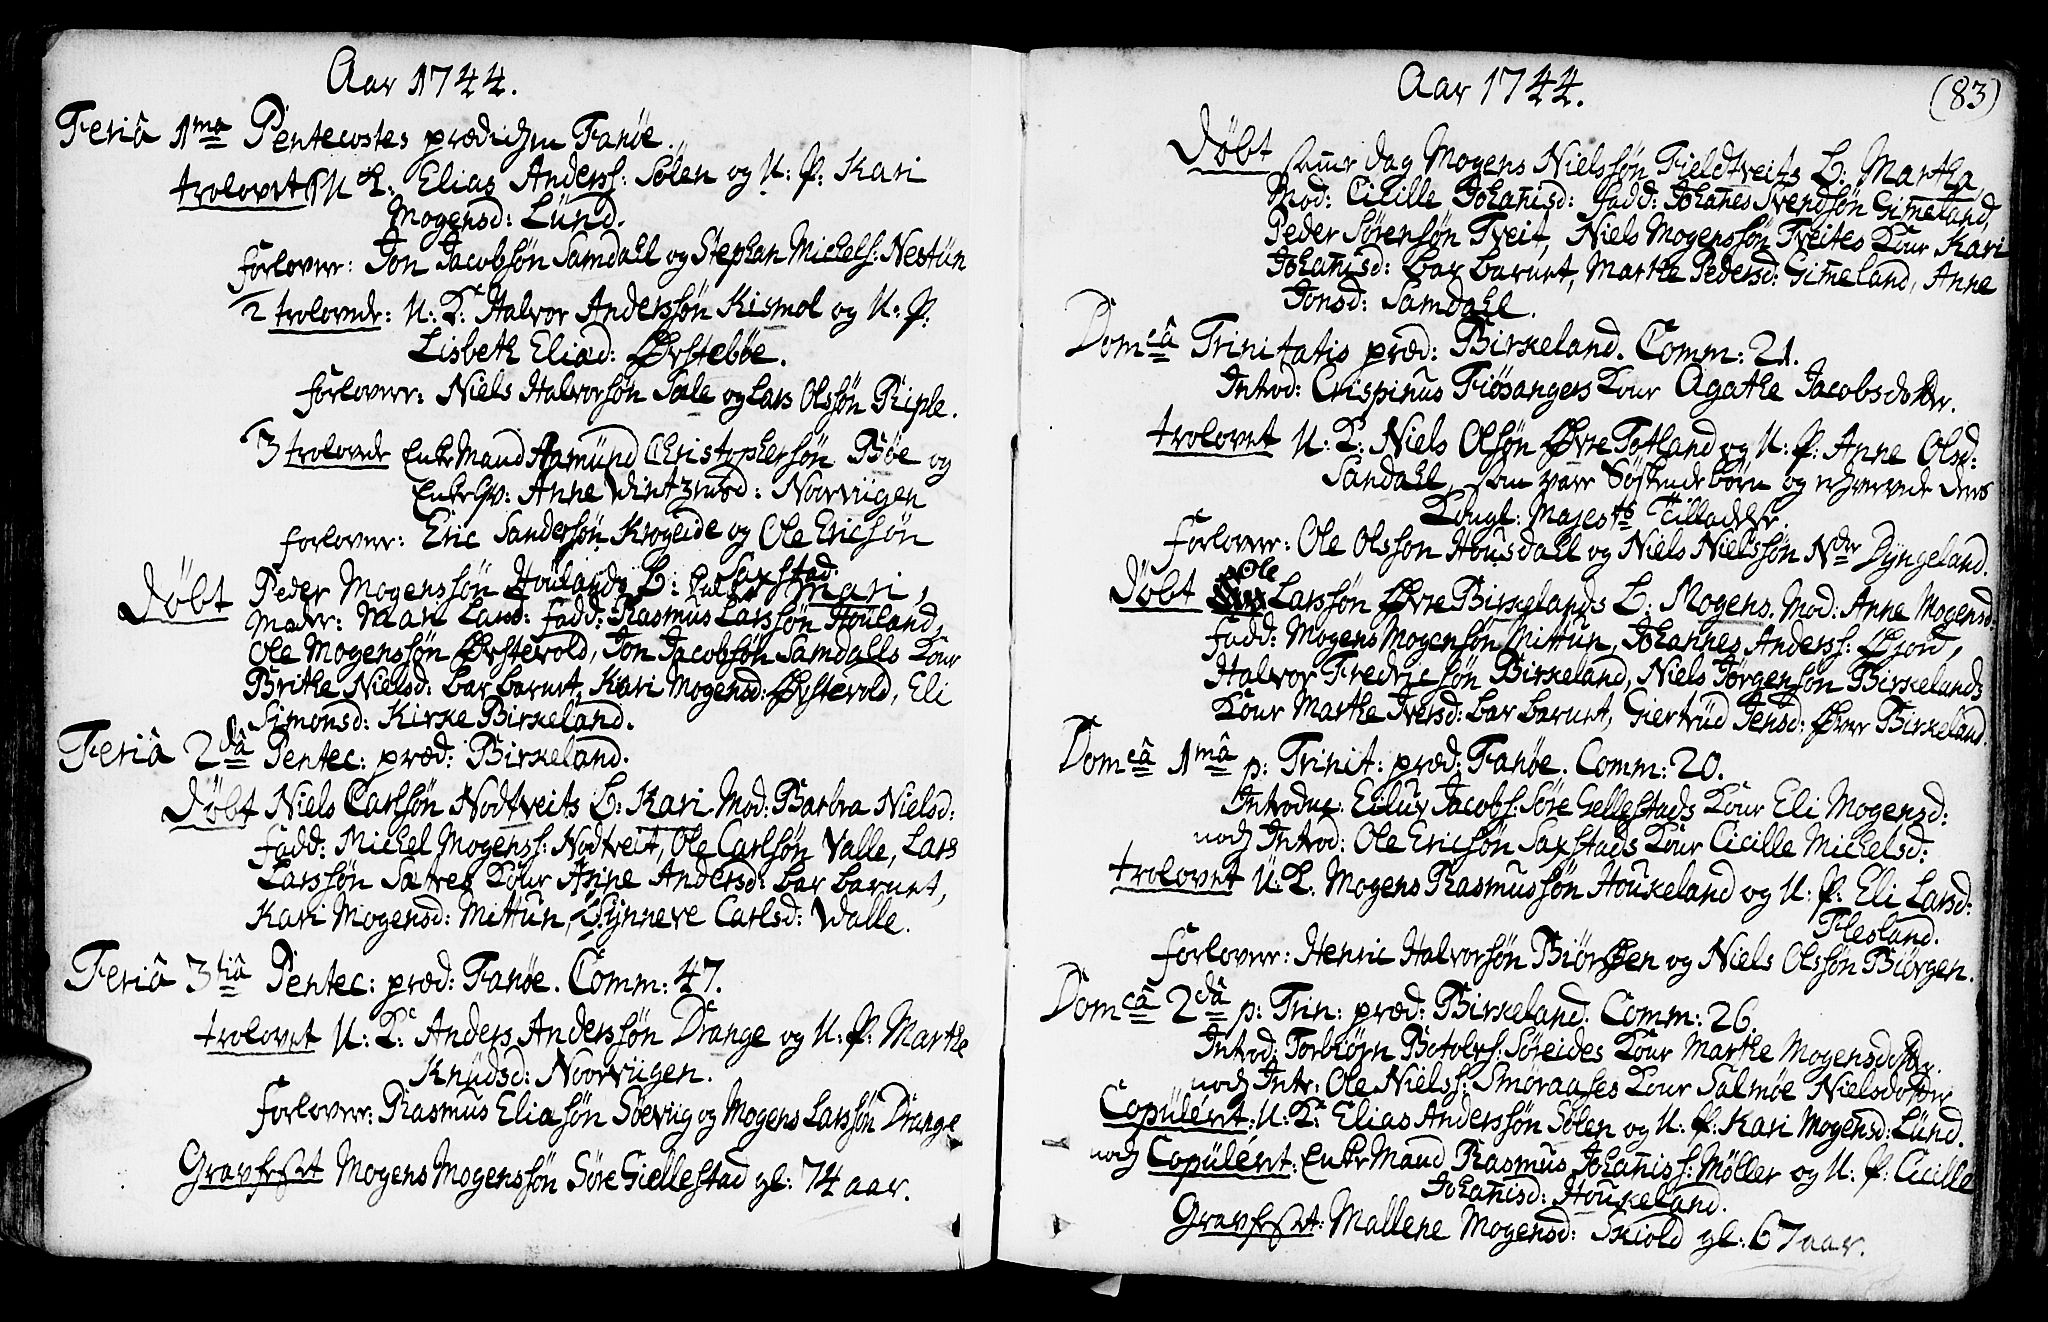 Aar 1744.
Feriâ 1ma Pentecostes prædichen Fanøe.
trolovet U: K: Elias Anderss: Sølen og U: P: Kari
Mogensd: Lünd.
Forlover: Jon Jacobsøn Samdahl og Stephan Michels: Nestün
2 trolovede: U: K: Halvor Anderssøn Kismol og U: P:
Lisbeth Eliæd: Ørstebøe.
Forlover: Niels Halvorsøn Sæle og Lars Olsøn Riple.
3 trolovede Enke Mand Aamünd Christophersøn Bøe og
Enke Qv: Anne Vintzensd: Noorviigen
Forlover: Eric Sandersøn Krogeide og Ole Ericsøn
Saxstad.
Døbt Peder Mogenssøn Houlands B: Mari,
Moder: Mari Larsd: Fadd: Rasmus Larssøn Houland,
Ole Mogenssøn Ørstevold, Jon Jacobsøn Samdalls Kour
Brithe Nielsd: bar barnet, Kari Mogensd: Ørstevold, Eli
Simonsd: Kirke Birkeland.
Feriâ 2dâ Pentec: præd: Birkeland.
Døbt Niels Carlssøn Nodtveits B: Kari Mod: Barbra Nielsd:
Fadd: Michel Mogenss: Nodtveit, Ole Carlsøn Valle, Lars
Larssøn Sætres Kour Anne Andersd: bar barnet,
Kari Mogensd: Mittun, Synneve Carlsd: Valle.
Feriâ 3tiâ Pentec: præd: Fanøe. Comm: 47.
trolovet U: K: Anders Anderssøn Drange og U: P: Marthe
Knüdsd: Noorviigen.
Forlover: Rasmus Eliasøn Søevig og Mogens Larssøn Drange
Gravfestet Mogens Mogenssøn Søre Giellestad gl: 74 aar.
Aar 1744.
(83)
Døbt samme dag Mogens Nielssøn Fieldtveits B: Martha,
Mod: Cicille Johanisd: Fadd: Johanes Svendsøn Gimeland,
Peder Sørensøn Tveit, Niels Mogenssøn Tveites Kour Kari
Johanisd: bar barnet, Marthe Pedersd: Gimeland, Anne
Jonsd: Samdahl.
Domcâ Trinitatis præd: Birkeland. Comm: 21.
Introd: Crispinus Fiøsangers Kour Agathe Jacobsdotter.
trolovet U: K: Niels Olsøn Øvre Tytland og U: P: Anne Olsd:
Sandahl, som vare Søskende børn og erhvervede dens
Kongl: Majestts Tilladelse.
Forlover: Ole Olsson Housdahl og Niels Nielssøn Ndre Dyngeland.
Døbt Ole Larssøn Øvre Birkelands B: Mogens. Mod: Anne Mogensd:
Fadd: Mogens Mogensøn Mittun, Johannes Anderss: Øxord,
Halvor Fredricsøn Birkeland, Niels Jørgensøn Birkelands
Kour Marthe Iversd: bar barnet, Giertrüd Jensd: Øvre Birkeland.
Domcâ 1mâ p: Trinit: præd: Fanøe. Comm: 20.
Introduc: Eiluv Jacobs: Søre Gellestads Kour Eli Mogensd:
noch Introd: Ole Ericsøn Saxstads Kour Cicille Michelsd:
trolovet U: K: Mogens Rasmussøn Houkeland og U: P: Eli Larsd:
Flesland.
Forlover: Henric Halvorsøn Biørgen og Niels Olssøn Biørgen.
Domcâ 2dâ p: Trin: præd: Birkeland. Comm: 26.
Introd: Torbiørn Botolvs: Søreides Kour Marthe Mogensdotter.
noch Intr: Ole Nielss: Smøraases Kour Salmøe Nielsdotter
Copulert: U: K: Elias Anderssøn Sølen og U: P: Kari Mogensd: Lünd.
noch Copulert: Enke Mand Rasmus Johaniss: Møller og U: P: Cicille
Johanisd: Houkeland.
Gravfestet: Mallene Mogensd: Skiold gl: 67 aar.